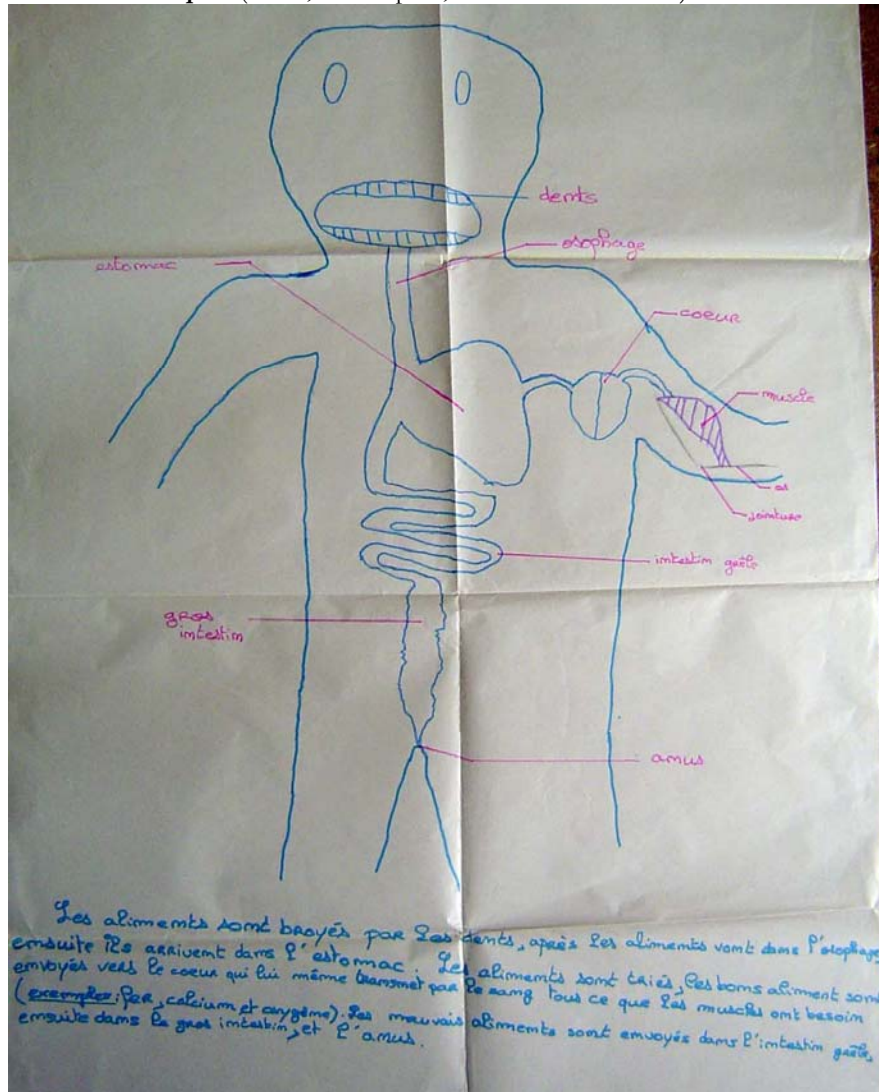 dents
osophage
estomac
coeur
muscle
os
jointure
intestin grêle
gros
intestin
anus
Les aliments sont broyés par les dents, après les aliments vont dans l'osophage,
ensuite ils arrivent dans l'estomac. Les aliments sont triés, les bons aliment sont
envoyés vers le coeur qui lui même transmet par le sang tous ce que les muscles ont besoin
(exemples: fer, calcium, et oxygène). Les mauvais aliments sont envoyés dans l'intestin grêle,
ensuite dans le gros intestin, et l'anus.